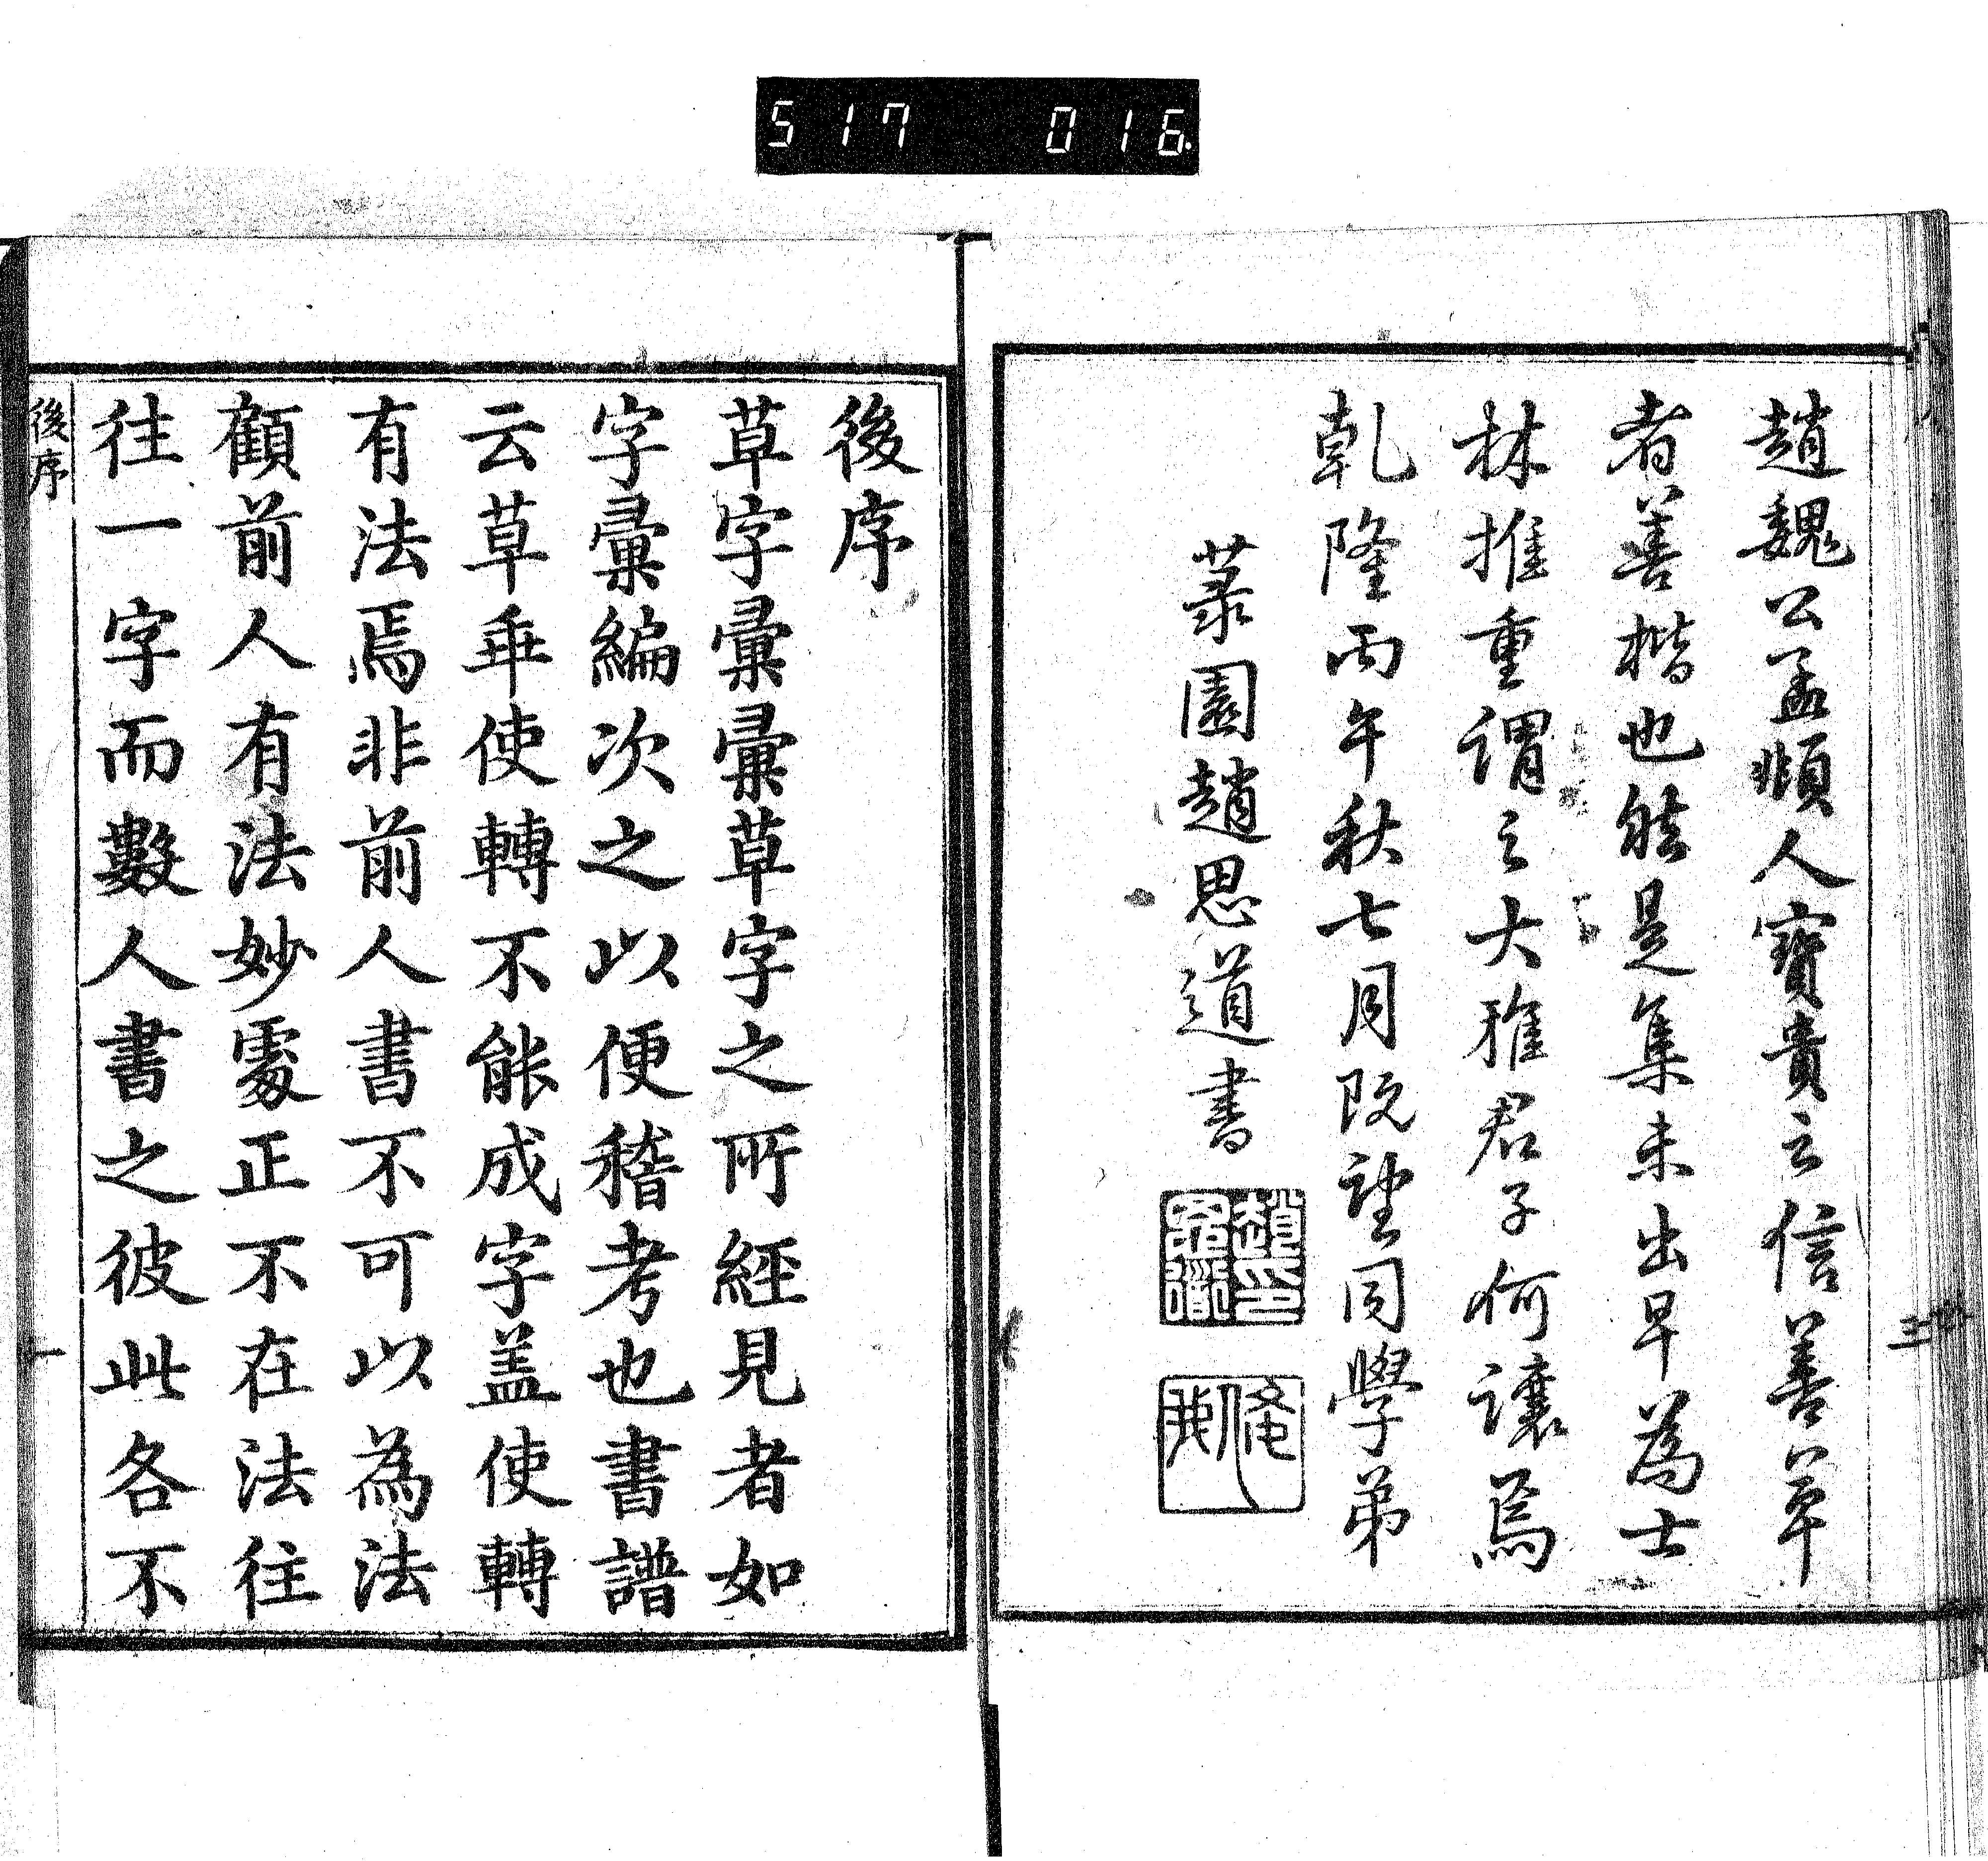 517 016
趙魏公孟頫人寶貴云信善草
者善楷也能是集未出早為士
林推重謂之大雅君子何讓焉
乾隆丙午秋七月既望同學弟
菉園趙思道書
三
後序
草字彙彙草字之所經見者如
字彙編次之以便稽考也書譜
云草乖使轉不能成字盖使轉
有法焉非前人書不可以為法
顧前人有法妙處正不在法往
往一字而數人書之彼此各不
後序
一